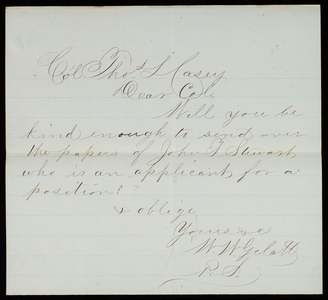 Col. Thos. L Casey
Dear Col.
Will you be
kind enough to send over
the papers of John T. Stewart,
who is an applicant for a
position?
& oblige
Yours &c
W W